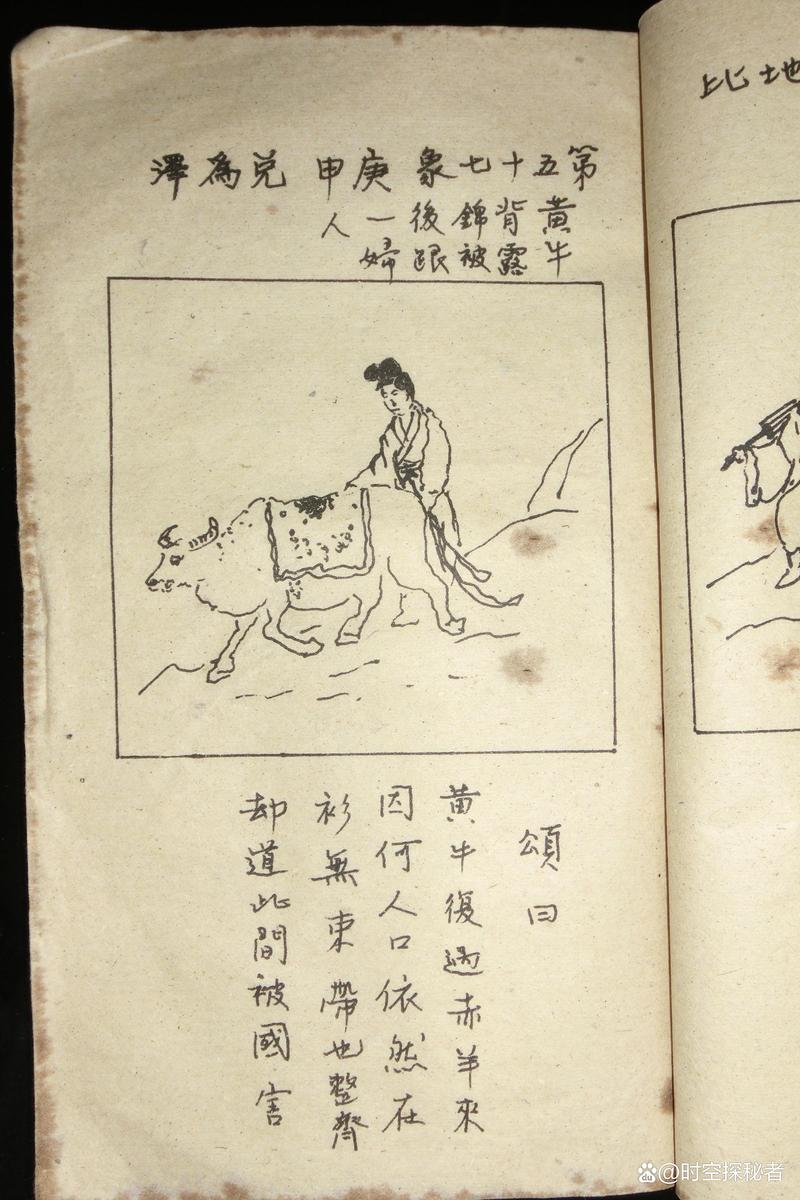 第五十七象 庚申 兌為澤
黃牛背露錦被後跟一婦人
頌曰
黃牛復過赤羊來
因何人口依然在
衫無東帶也整齊
却道此間被國害
比地
@时空探秘者